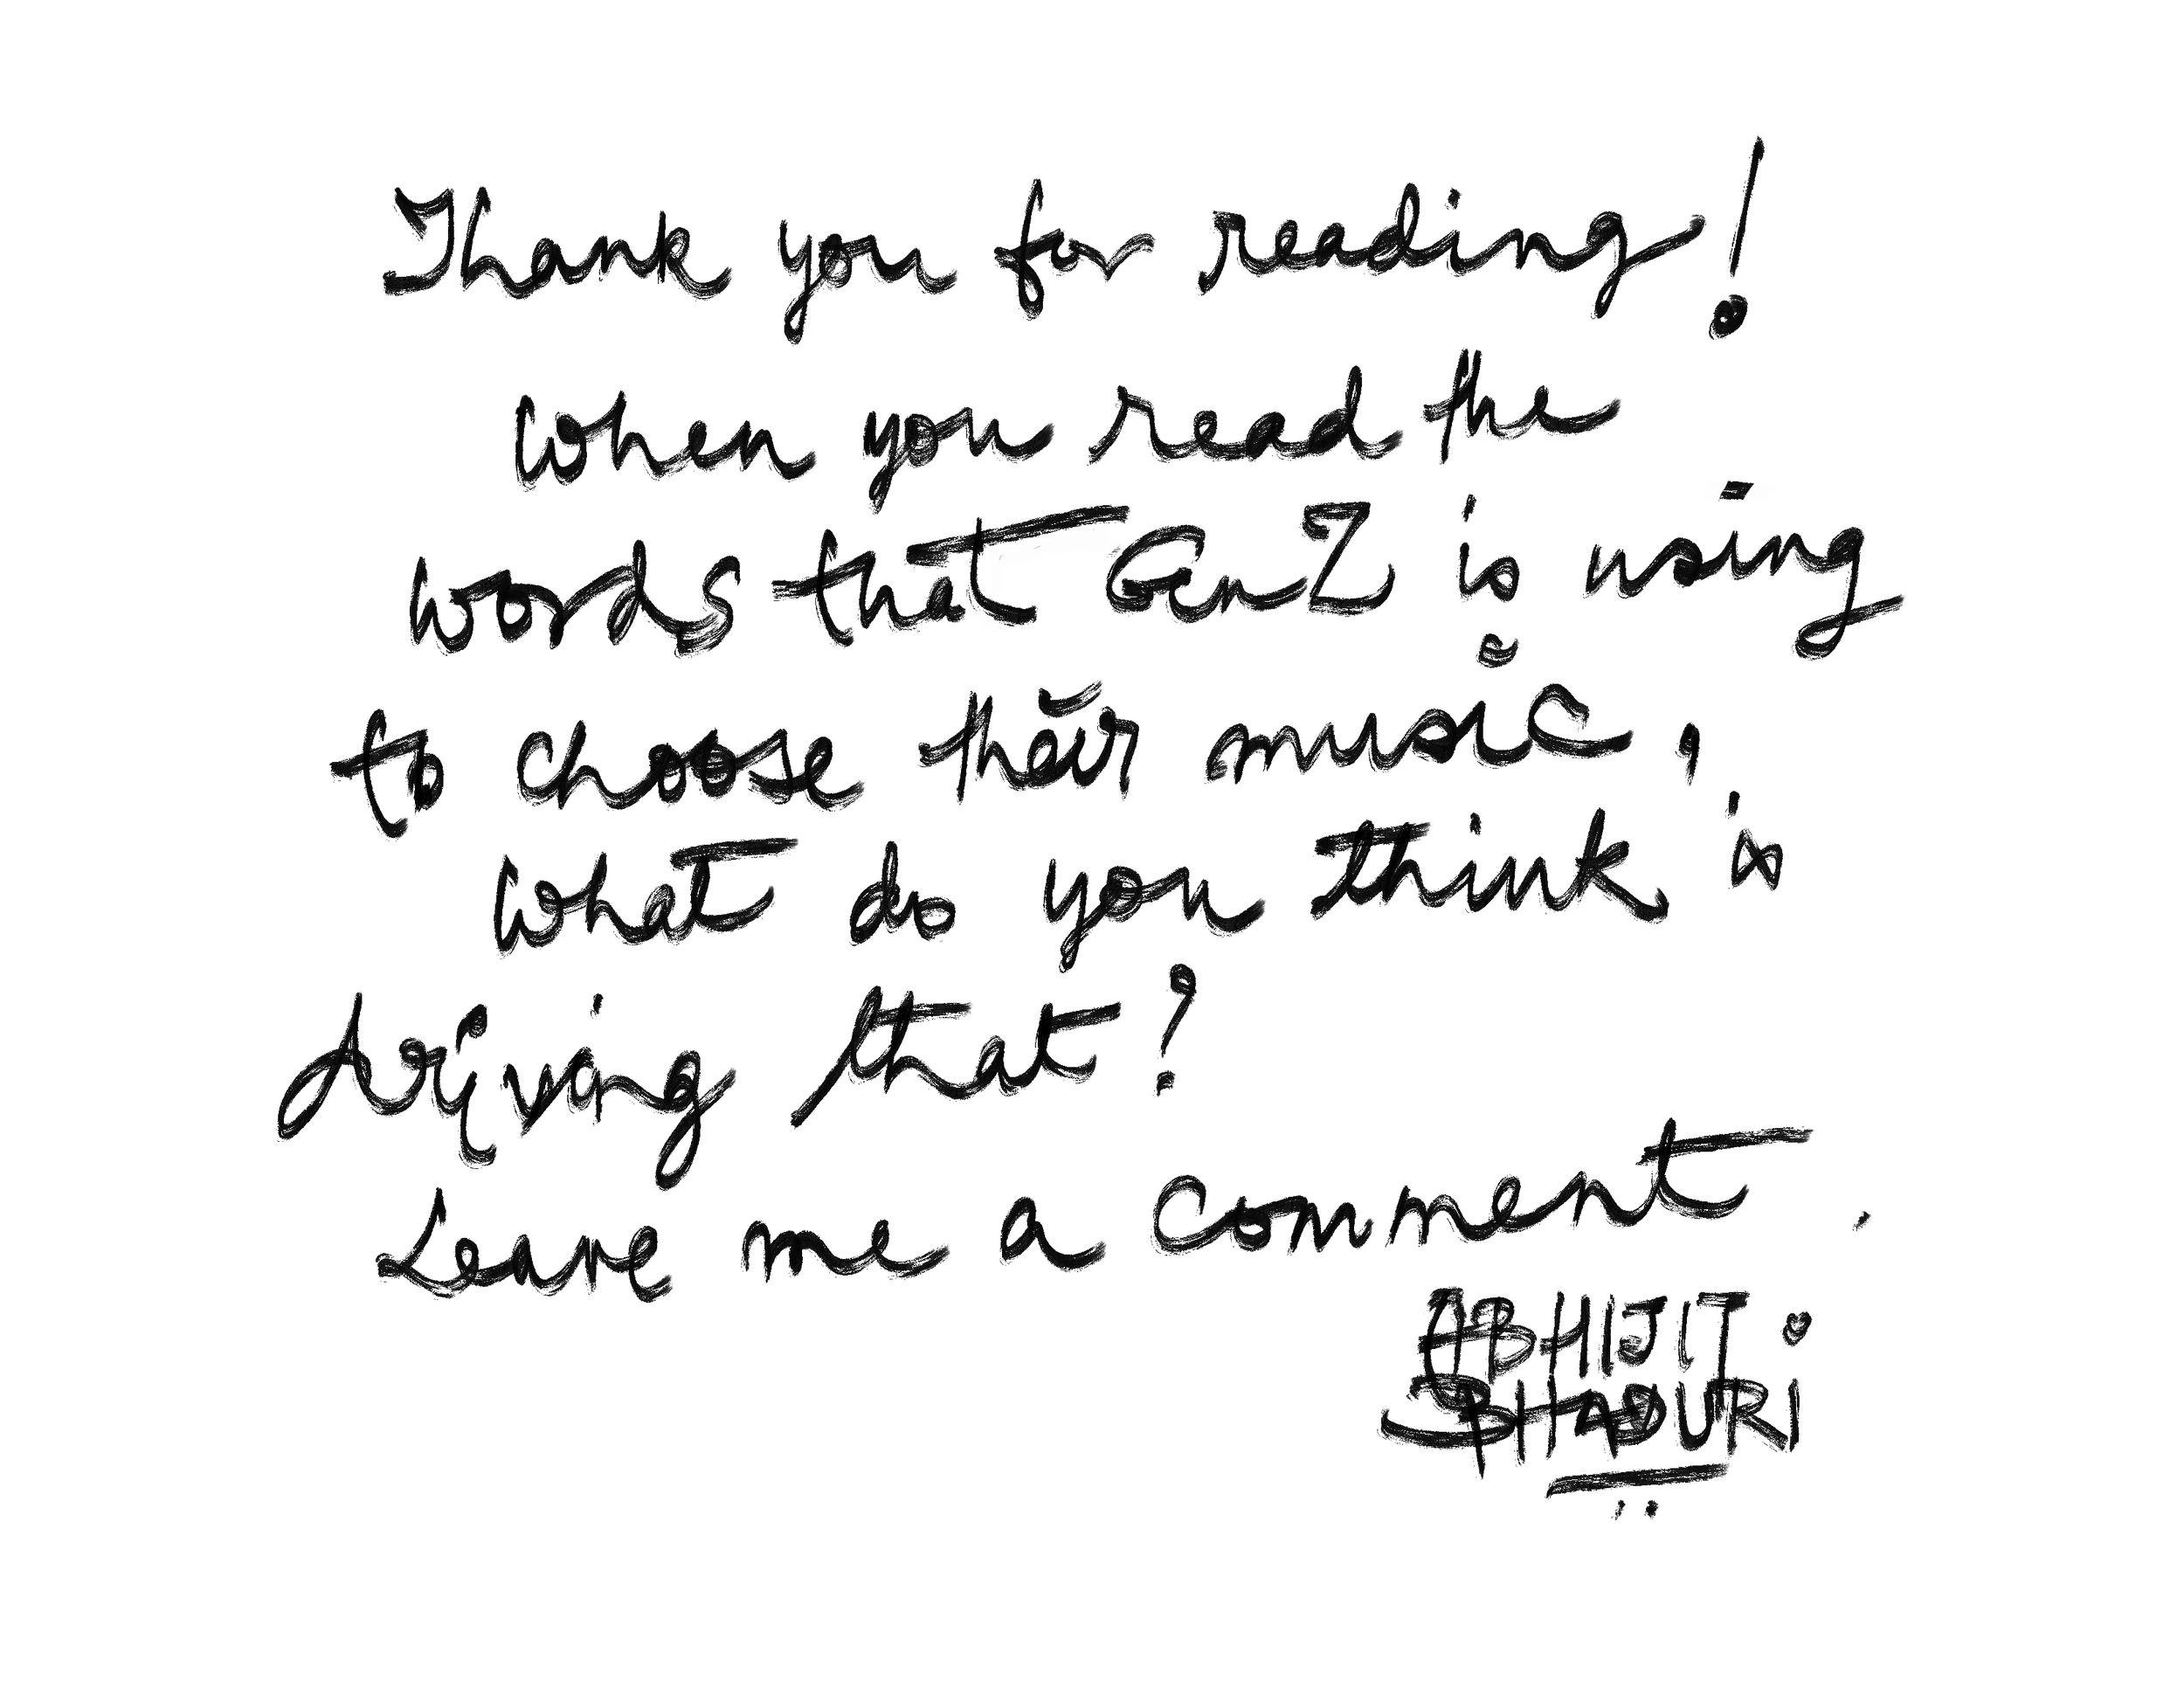 Thank you for reading!
When you read the
words that GenZ is using
to choose their music,
what do you think is
driving that?
Leave me a comment.
ABHIJIT
BHADURI